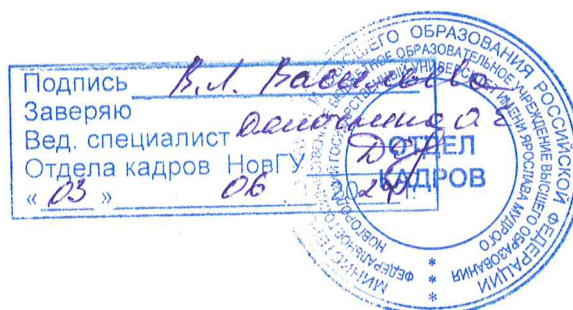 Подпись В.Л. Васильева
Заверяю
Вед. специалист
Отдела кадров НовГУ
« 03 » 06 2024 г.
ОТДЕЛ
КАДРОВ
МИНИСТЕРСТВО НАУКИ И ВЫСШЕГО ОБРАЗОВАНИЯ РОССИЙСКОЙ ФЕДЕРАЦИИ
ФЕДЕРАЛЬНОЕ ГОСУДАРСТВЕННОЕ БЮДЖЕТНОЕ ОБРАЗОВАТЕЛЬНОЕ УЧРЕЖДЕНИЕ ВЫСШЕГО ОБРАЗОВАНИЯ
НОВГОРОДСКИЙ ГОСУДАРСТВЕННЫЙ УНИВЕРСИТЕТ ИМЕНИ ЯРОСЛАВА МУДРОГО
* * *